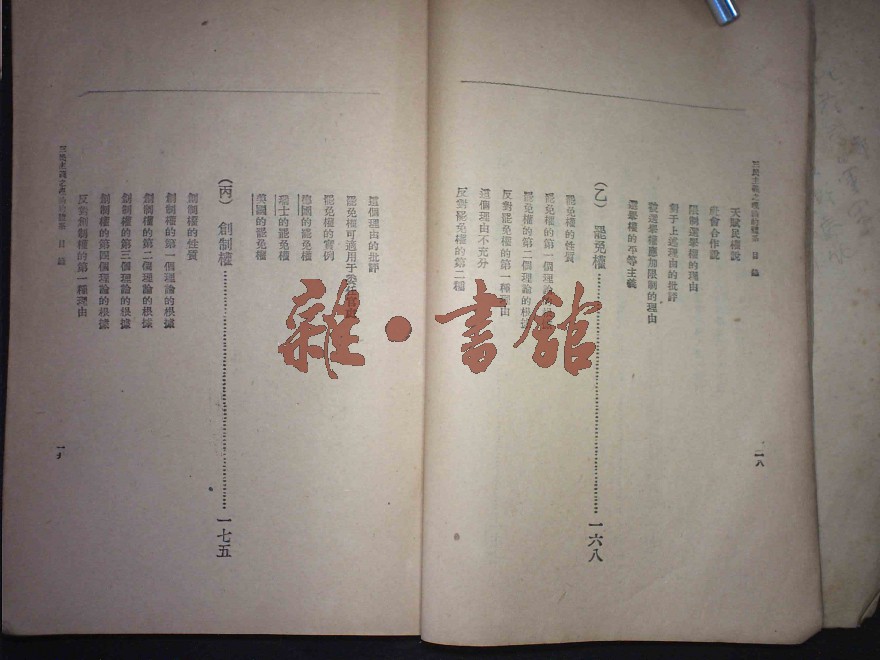 三民主義之政治的體系 目錄
天賦民權說
社會合作說
限制選舉權的理由
對于上述理由的批評
被選舉權應加限制的理由
選舉權的平等主義
(乙) 罷免權……一六八
罷免權的性質
罷免權的第一個理論的根據
罷免權的第二個理論的根據
反對罷免權的第一種理由
這個理由不充分
反對罷免權的第二種
這個理由的批評
罷免權可適用于委任官吏
罷免權的實例
德國的罷免權
瑞士的罷免權
英國的罷免權
(丙) 創制權……一七五
創制權的性質
創制權的第一個理論的根據
創制權的第二個理論的根據
創制權的第三個理論的根據
創制權的第四個理論的根據
反對創制權的第一種理由
三民主義之政治的體系 目錄
雜·書館